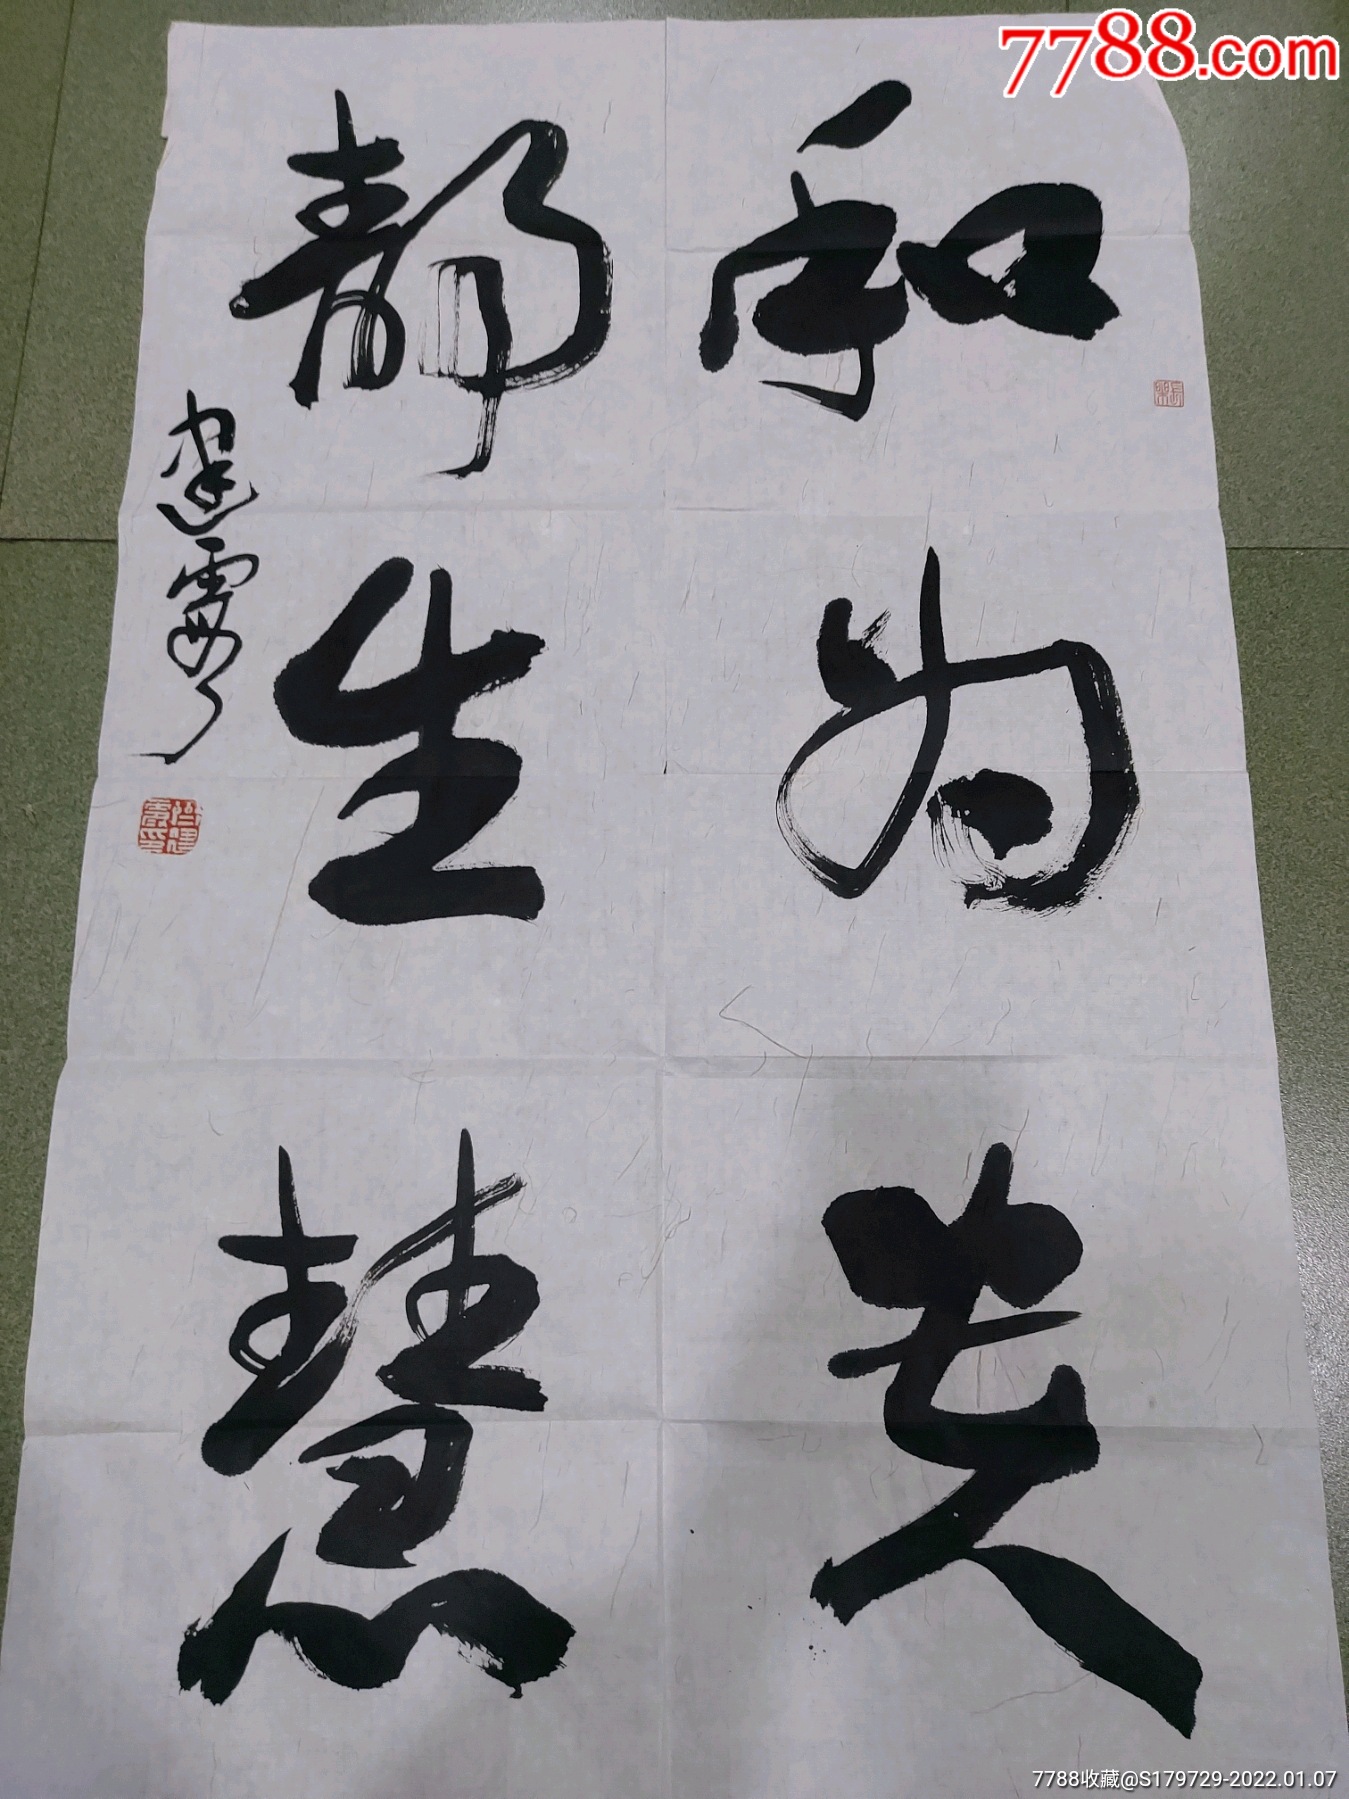 7788.com
和为贵
静生慧
7788收藏@S179729-2022.01.07